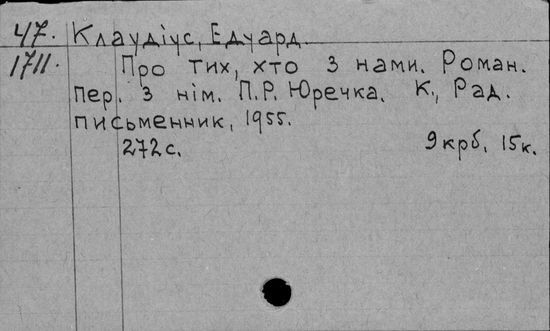 47. Клаудіус, Едуард.
1711. Про тих, хто з нами. Роман.
Пер. з нім. П.Р. Юречка. К., Рад.
письменник, 1955.
272с. 9крб. 15к.